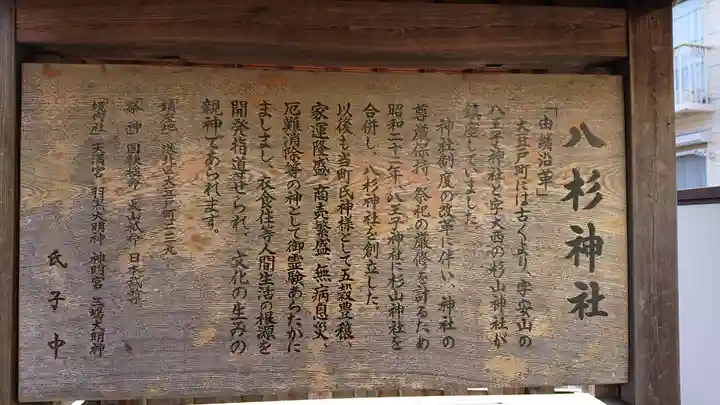 八杉神社
「由緒沿革」
大豆戸町には古くより、字安山の
八王子神社と字大西の杉山神社が
鎮座していました。
神社制度の改革に伴い、神社の
尊厳保持、祭祀の厳修を計るため
昭和三十三年、八王子神社に杉山神社を
合併し、八杉神社を創立した。
以後も当町氏神様として五穀豊穣、
家運隆盛、商売繁盛、無病息災、
厄難消除等の神として御霊験あらたかに
ましまし、衣食住等人間生活の根源を
開発指導せられ、文化の生みの
親神であられます。
鎮座地 港北区大豆戸町二三九
祭神 国狭槌尊 大山祇命 日本武尊
境内社 天満宮 羽黒大明神 神明宮 三嶋大明神
氏子中